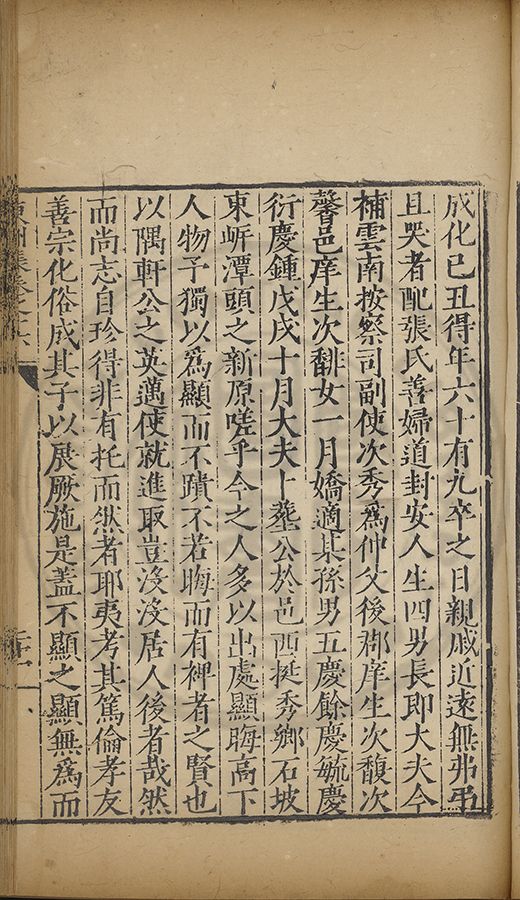 成化己丑得年六十有九卒之日親戚近遠無弗弔
且哭者配張氏善婦道封安人生四男長即大夫今
補雲南按察司副使次秀爲仲父後郡庠生次馥次
馨邑庠生次馡女一月嬌適某孫男五慶餘慶毓慶
衍慶鍾戊戌十月大夫卜塟公於邑西挺秀鄉石坡
東㟁潭頭之新原嗟乎今之人多以出處顯晦高下
人物予獨以爲顯而不蹟不若晦而有裨者之賢也
以隅軒公之英邁使就進取豈沒沒居人後者哉然
而尚志自珍得非有托而然者耶夷考其篤倫孝友
善宗化俗成其子以展厥施是蓋不顯之顯無爲而
東洲集卷之六